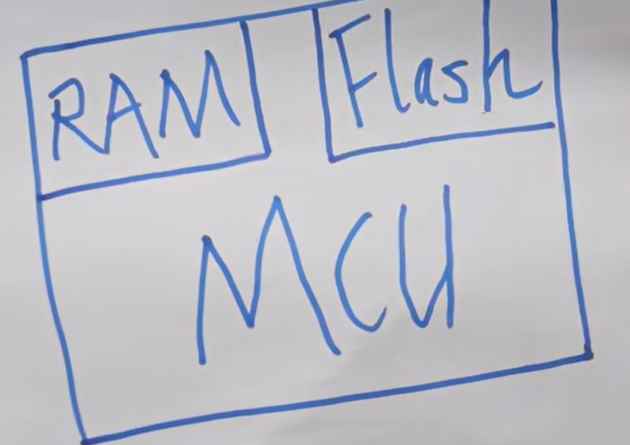 RAM Flash
MCU